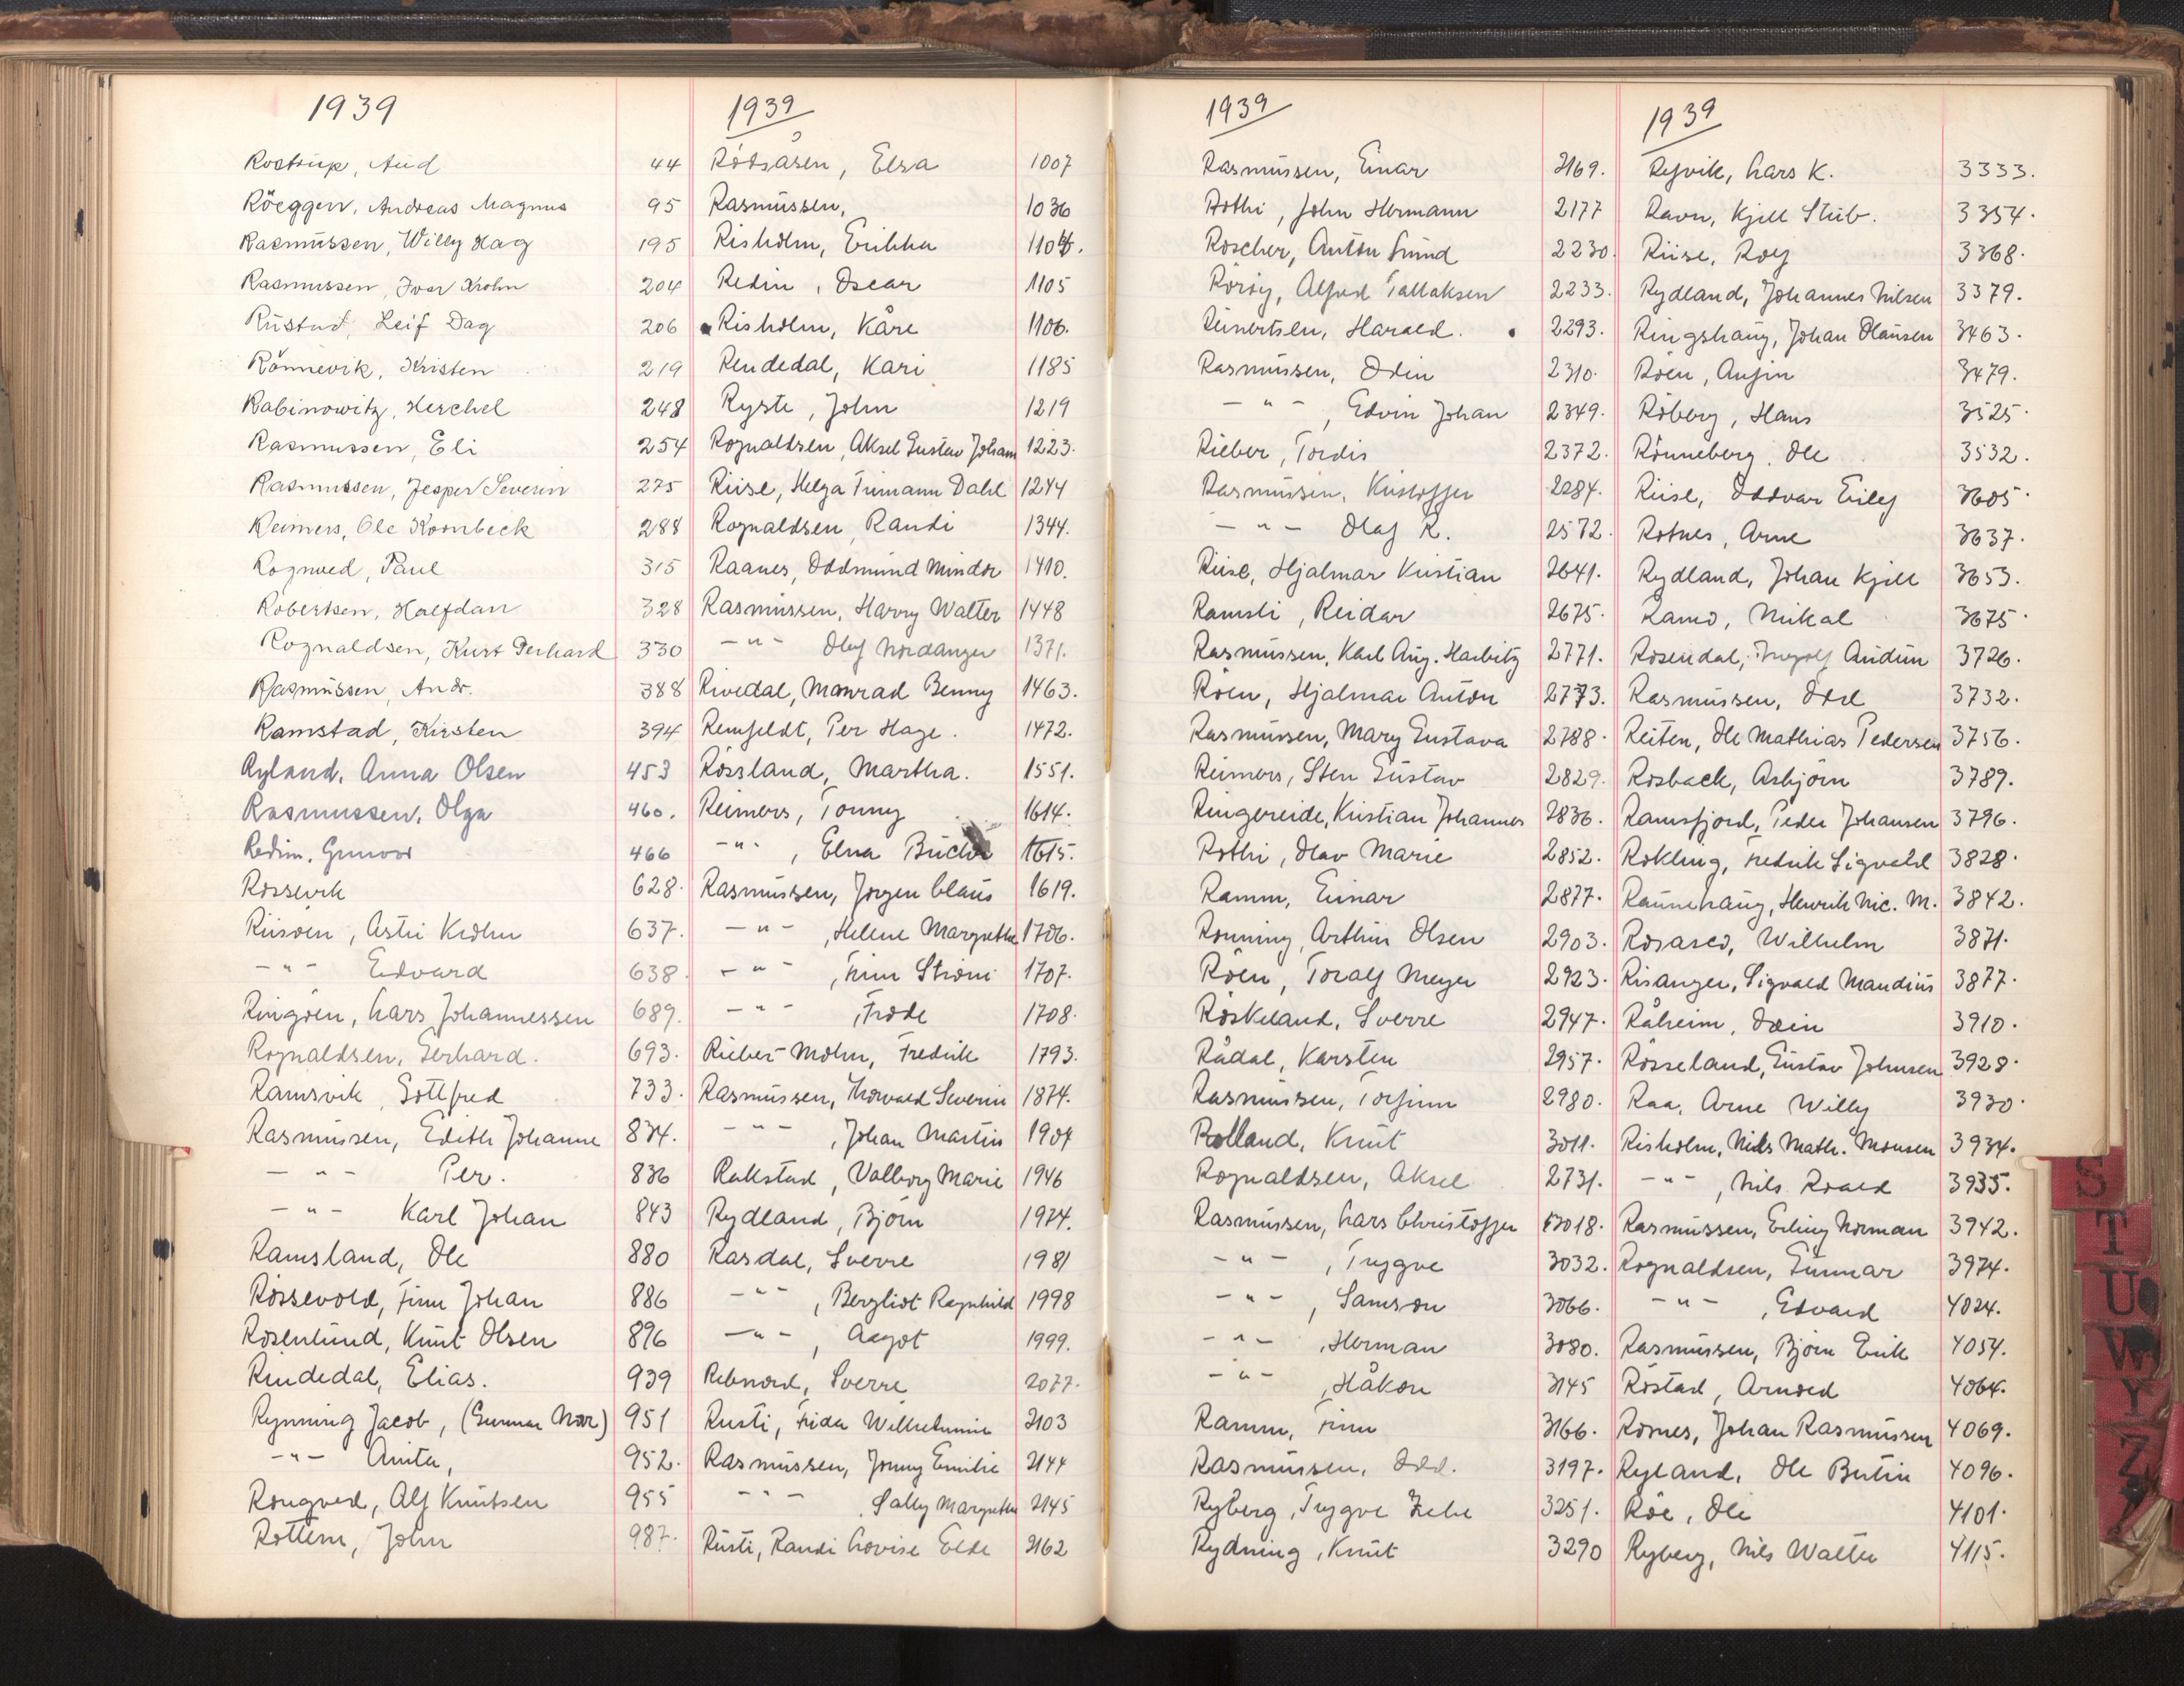 1939
Rostrup, Aud 44
Röeggen, Andreas Magnus 95
Rasmussen, Willy Hag 195
Rasmussen, Ivar Krohn 204
Rustad, Leif Dag 206
Rönnevik, Kristen 219
Rabinowitz, Herschel 248
Rasmussen, Eli 254
Rasmussen, Jesper Severin 275
Reimers, Ole Koonbeck 288
Rognved, Paul 315
Robertsen, Halfdan 328
Rognaldsen, Kurt Gerhard 330
Rasmussen, Andr. 388
Ramstad, Kirsten 394
Ryland, Anna Olsen 453
Rasmussen, Olga 460.
Redin, Gunvor 466
Rossevik 628.
Riisöen, Astri Krohn 637.
-"- Edvard 638
Ringöen, Lars Johannessen 689.
Rognaldsen, Gerhard. 693.
Ramsvik, Gottfred 733.
Rasmussen, Edith Johanne 834.
-"- Per. 836
-"- Karl Johan 843
Ramsland, Ole 880
Rössevold, Finn Johan 886
Rosenlund, Knut Olsen 896
Rindedal, Elias. 939
Rynning Jacob, (Gunnar Nor) 951
-"- Anita, 952.
Rongved, Alf Knutsen 955
Rottem, John 987.
1939
Rödsåsen, Elsa 1007
Rasmussen, 1036
Risholm, Erikka 1104.
Redin, Oscar 1105
Risholm, Kåre 1106.
Rendedal, Kari 1185
Ryste, John 1219
Rognaldsen, Aksel Gustav Johan 1223.
Riise, Helga Timann Dahl 1244
Rognaldsen, Randi 1344.
Raanes, Oddmund Mindor 1410.
Rasmussen, Harry Walter 1448
-"- Olaf Nordanger 1371.
Rivedal, Monrad Benny 1463.
Remfeldt, Per Hage. 1472.
Rössland, Martha. 1551.
Reimers, Tonny 1614.
-"-, Elna 1615.
Rasmussen, Jörgen Claus 1619.
-"-, Helene Margrethe 1706.
-"-, Finn Ströni 1707.
-"-, Frode 1708.
Rieber-Mohn, Fredrik 1793.
Rasmussen, Thorvald Severin 1874.
-"-, Johan Martin 1907
Rakstad, Valborg Marie 1946
Rydland, Björn 1974.
Rasdal, Sverre 1981
-"-, Bergliot Ragnhild 1998
-"-, Aagot 1999.
Rebnord, Sverre 2077.
Rusti, Frida Wilhelmine 2103
Rasmussen, Jonny Emilie 2144
-"-, Sally Margrethe 2145
Rusti, Randi Lovise Elde 2162
1939
Rasmussen, Einar 2169.
Rothi, John Hermann 2177
Roscher, Anton Lund 2230.
Röröy, Alfred Tallaksen 2233.
Reinertsen, Harald. 2293.
Rasmussen, Odin 2310.
-"-, Edvin Johan 2349.
Rieber, Tordis 2372.
Rasmussen, Kristoffer 2284.
-"- Olaf R. 2572.
Riise, Hjalmar Kristian 2641.
Ramsli, Reidar 2675.
Rasmussen, Karl Aug. Harbitz 2771.
Röen, Hjalmar Anton 2773.
Rasmussen, Mary Gustava 2788.
Reimers, Sten Gustav 2829.
Ringereide, Kristian Johannes 2836.
Rothi, Olav Marie 2852.
Ramm, Einar 2877.
Rönning, Arthur Olsen 2903.
Röen, Toralf Meyer 2923.
Röskeland, Sverre 2947.
Rådal, Karsten 2957.
Rasmussen, Torfinn 2980.
Rolland, Knut 3011.
Rognaldsen, Aksel 2731.
Rasmussen, Lars Christoffer 3018.
-"-, Trygve 3032.
-"-, Samson 3066.
-"-, Herman 3080.
-"-, Håkon 3145
Ramm, Finn 3166.
Rasmussen, Odd. 3197.
Ryberg, Trygve Zebe 3251.
Rydning, Knut 3290
1939
Rysvik, Lars K. 3333.
Ravn, Kjell Stub. 3354.
Riise, Rolf 3368.
Rydland, Johannes Nilsen 3379.
Ringshaug, Johan Olausen 3463.
Röen, Anfin 3479.
Röberg, Hans 3525.
Rönneberg, Ole 3532.
Riise, Oddvar Eilef 3605.
Rotnes, Arne 3637.
Rydland, Johan Kjell 3653.
Ramo, Mikal 3675.
Rosendal, Ingolf Audun 3726.
Rasmussen, Odd 3732.
Reiten, Ole Mathias Pedersen 3756.
Rosback, Asbjörn 3789.
Ramsfjord, Peder Johansen 3796.
Rokling, Fredrik Sigvald 3828.
Raunehaug, Henrik Nic. M. 3842.
Rosared, Wilhelm 3871.
Risanger, Sigvald Mandius 3877.
Råheim, Odin 3910.
Rösseland, Gustav Johnsen 3928.
Raa, Arne Willy 3930.
Risholm, Nils Math. Monsen 3934.
-"-, Nils Roald 3935.
Rasmussen, Erling Norman 3942.
Rognaldsen, Gunnar 3974.
-"-, Edvard 4024.
Rasmussen, Björn Erik 4054.
Röstad, Arnold 4064.
Rosnes, Johan Rasmussen 4069.
Ryland, Ole Bertin 4096.
Röe, Ole 4101.
Ryberg, Nils Walter 4115.
S
T
U
W
Y
Z